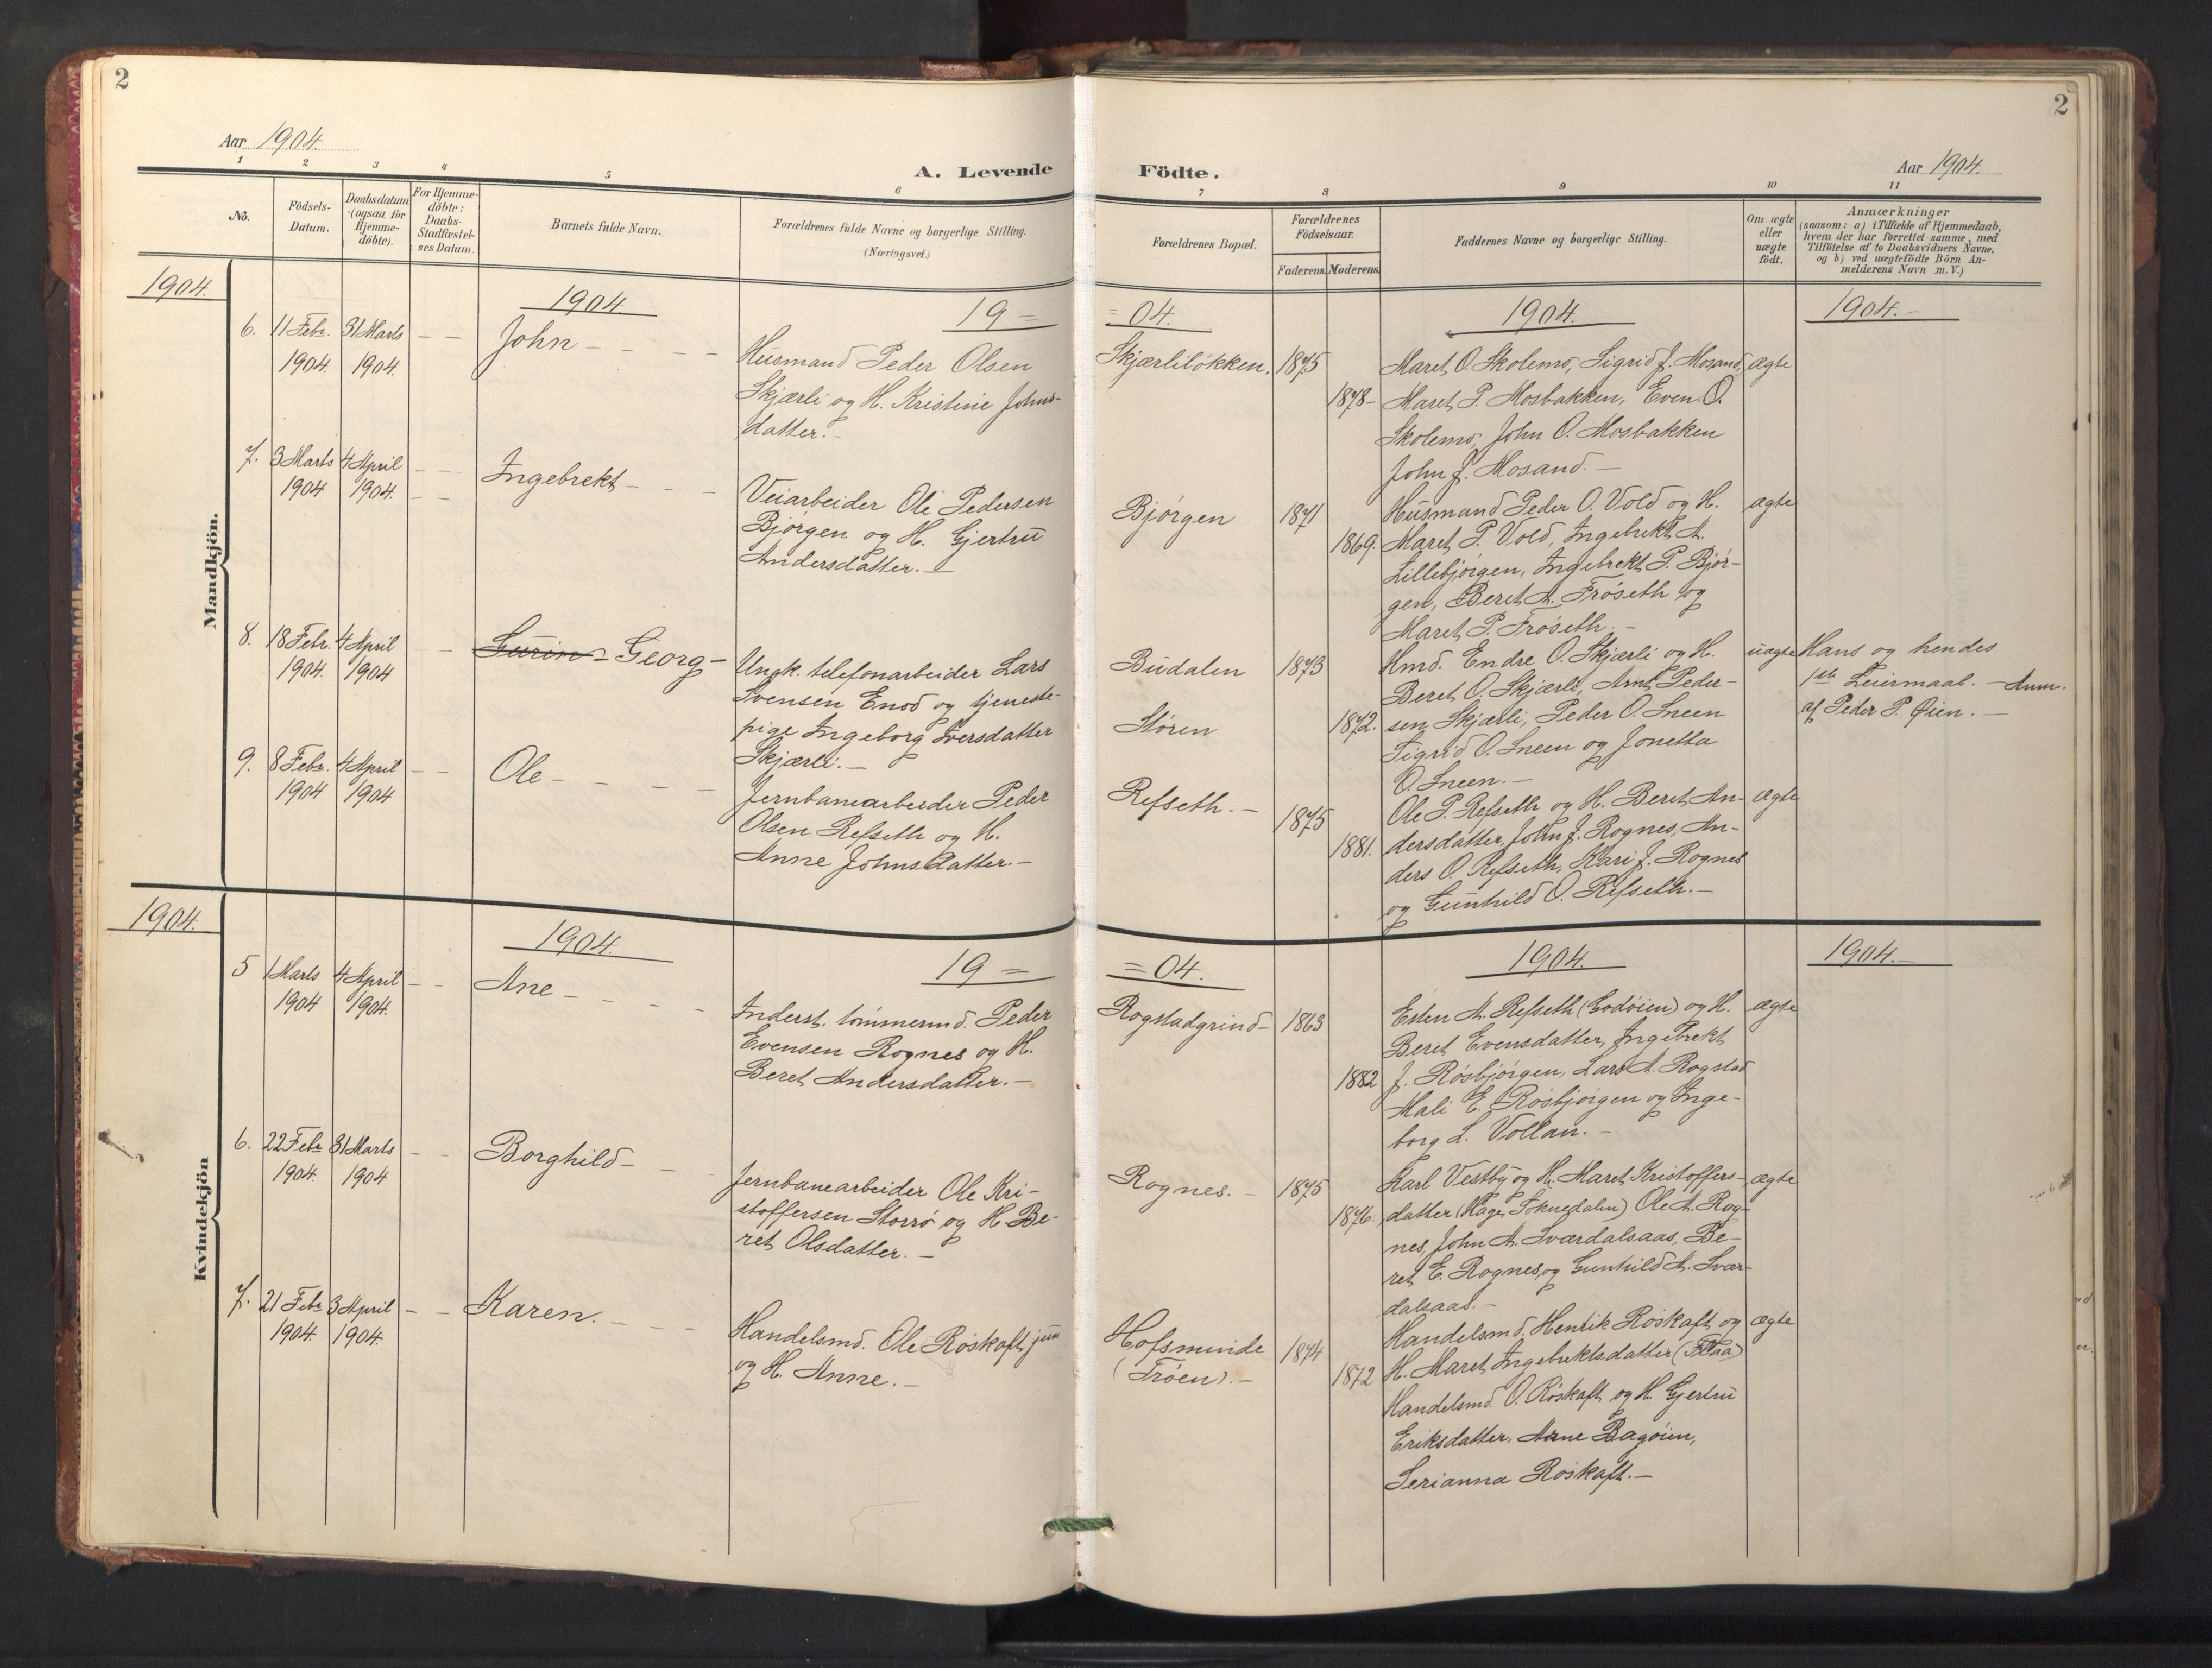 2
2
Aar 1904.
A. Levende
Födte.
Aar 1904.
1 2 3 4 5 6 7 8 9 10 11
No.
Födsels-
Datum.
Daabsdatum
(ogsaa for
Hjemme-
döbte).
For Hjemme-
döbte:
Daabs-
Stadfæstel-
ses Datum.
Barnets fulde Navn.
Forældrenes fulde Navne og borgerlige Stilling.
(Næringsvei.)
Forældrenes Bopæl.
Forældrenes
Födselsaar.
Faderens. Moderens.
Faddernes Navne og borgerlige Stilling.
Om ægte
eller
uægte
födt.
Anmærkninger
(saasom: a) i Tilfælde af Hjemmedaab,
hvem der har forrettet samme, med
Tilföielse af to Daabsvidners Navne,
og b) ved uægtefödte Börn An-
melderens Navn m. V.)
Mandkjön.
1904.
1904.
19 =
= 04.
1904.
1904. -
6. 11 Febr. 1904. 31 Marts 1904. - - John - - - -
Husmand Peder Olsen
Skjærli og H. Kristine Johns-
datter. -
Skjærliløkken. 1875
1878-
Maret O. Skolemo, Sigrid J. Mosand,
Maret P. Mosbakken, Even O.
Skolemo, John O. Mosbakken
John J. Mosand. -
ægte
7. 3 Marts 1904 4 April 1904. - - Ingebrekt - - -
Veiarbeider Ole Pedersen
Bjørgen og H. Gjertru
Andersdatter. -
Bjørgen 1871
1869.
Husmand Peder O. Vold og H.
Maret P. Vold, Ingebrekt A.
Lillebjørgen, Ingebrekt P. Bjør-
gen, Beret A. Frøseth og
Maret P. Frøseth. -
ægte
8. 18 Febr. 1904. 4 April 1904 - - Georg -
Ungk. telefonarbeider Lars
Svensen Enod og tjeneste-
pige Ingeborg Iversdatter
Skjærli. -
Budalen 1873
Støren 1872.
Hmd. Endre O. Skjærli og H.
Beret O. Skjærli, Arnt Peder-
sen Skjærli, Peder O. Sneen
Sigrid O. Sneen og Jonetta
O. Sneen. -
uægte
Hans og hendes
1ste Leiermaal. - Anm.
af Peder P. Øien. -
9. 8 Febr. 1904 4 April 1904 - - Ole - - - -
Jernbanearbeider Peder
Olsen Refseth og H.
Anne Johnsdatter. -
Refseth. - 1875
1881.
Ole P. Refseth og H. Beret An-
dersdatter, John J. Rognes, An-
ders O. Refseth, Kari J. Rognes
og Gunhild O. Refseth. -
ægte
Kvindekjön
1904.
1904.
19 =
= 04.
1904.
1904. -
5 1 Marts 1904 4 April 1904. - - Ane - - - -
Inderst. tømmermd. Peder
Evensen Rognes og H.
Beret Andersdatter. -
Rogstadgrind - 1863
1882
Esten A. Refseth (Godøien) og H.
Beret Evensdatter, Ingebrekt
J. Røsbjørgen, Lars A. Rogstad
Mali E. Røsbjørgen og Inge-
borg L. Vollan. -
ægte
6. 22 Febr 1904. 31 Marts 1904 - - Borghild - - -
Jernbanearbeider Ole Kri-
stoffersen Storrø og H Be-
ret Olsdatter. -
Rognes. - 1875
1876.
Karl Vestby og H. Maret Kristoffers-
datter (Hage, Soknedalen) Ole A. Rog-
nes, John A. Sværdalsaas, Be-
ret E. Rognes, og Gunhild A. Svær-
dalsaas. -
ægte
7. 21 Febr 1904. 3 April 1904. - - Karen. - - -
Handelsmd. Ole Røskaft jun
og H. Anne. -
Hofsminde
(Frøen). -
1874
1872
Handelsmd. Henrik Røskaft og
H. Maret Ingebrektsdatter (Flaa)
Handelsmd. O. Røskaft og H. Gjertru
Eriksdatter, Arne Bagøien,
Serianna Røskaft. -
ægte